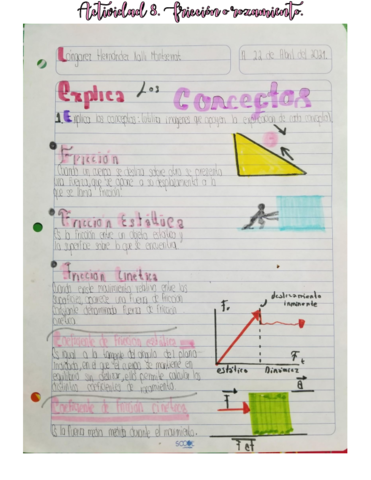 Actividad 8. Fricción o rozamiento.
22 de Abril del 2021
Explica Los Conceptos
1. Explica los conceptos. Utiliza imagenes que apoyen la explicación de cada concepto
Fricción
Cuando un cuerpo se desliza sobre otro se presenta
una fuerza que se opone a su desplazamiento a la
que se llama "Fricción"
Fricción Estática
Es la fricción entre un objeto estático y
la superficie sobre la que se encuentra
Fricción Cinética
Cuando existe movimiento relativo entre las
superficies, aparece una fuerza de fricción
constante denominada fuerza de fricción
cinética
deslizamiento
inminente
F
estático
Dinámica
Coeficiente de fricción estática
Es igual a la tangente del ángulo del plano
inclinado, en el que el cuerpo se mantiene en
equilibrio sin deslizar, esto permite calcular los
distintos coeficientes de rozamiento
Coeficiente de fricción cinética
Es la fuerza media medida durante el movimiento.
F